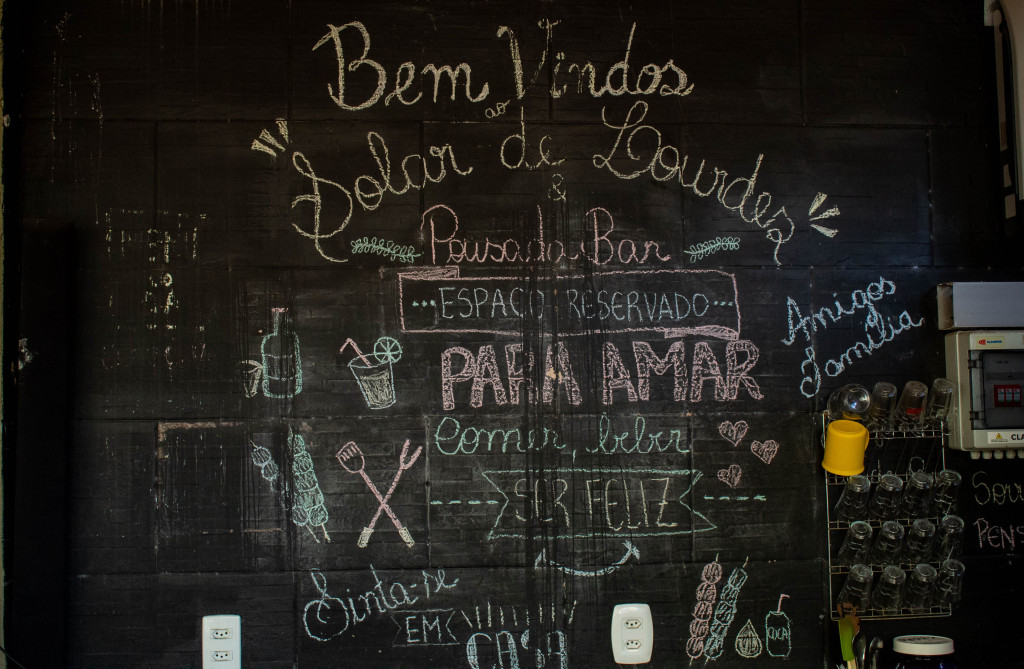 Bem Vindos
ao
Solar de Lourdes
&
Pousada Bar
ESPAÇO RESERVADO
PARA AMAR
Comer, beber
SER FELIZ
Sinta-se
EM
CASA
Amigos
Família
COCA